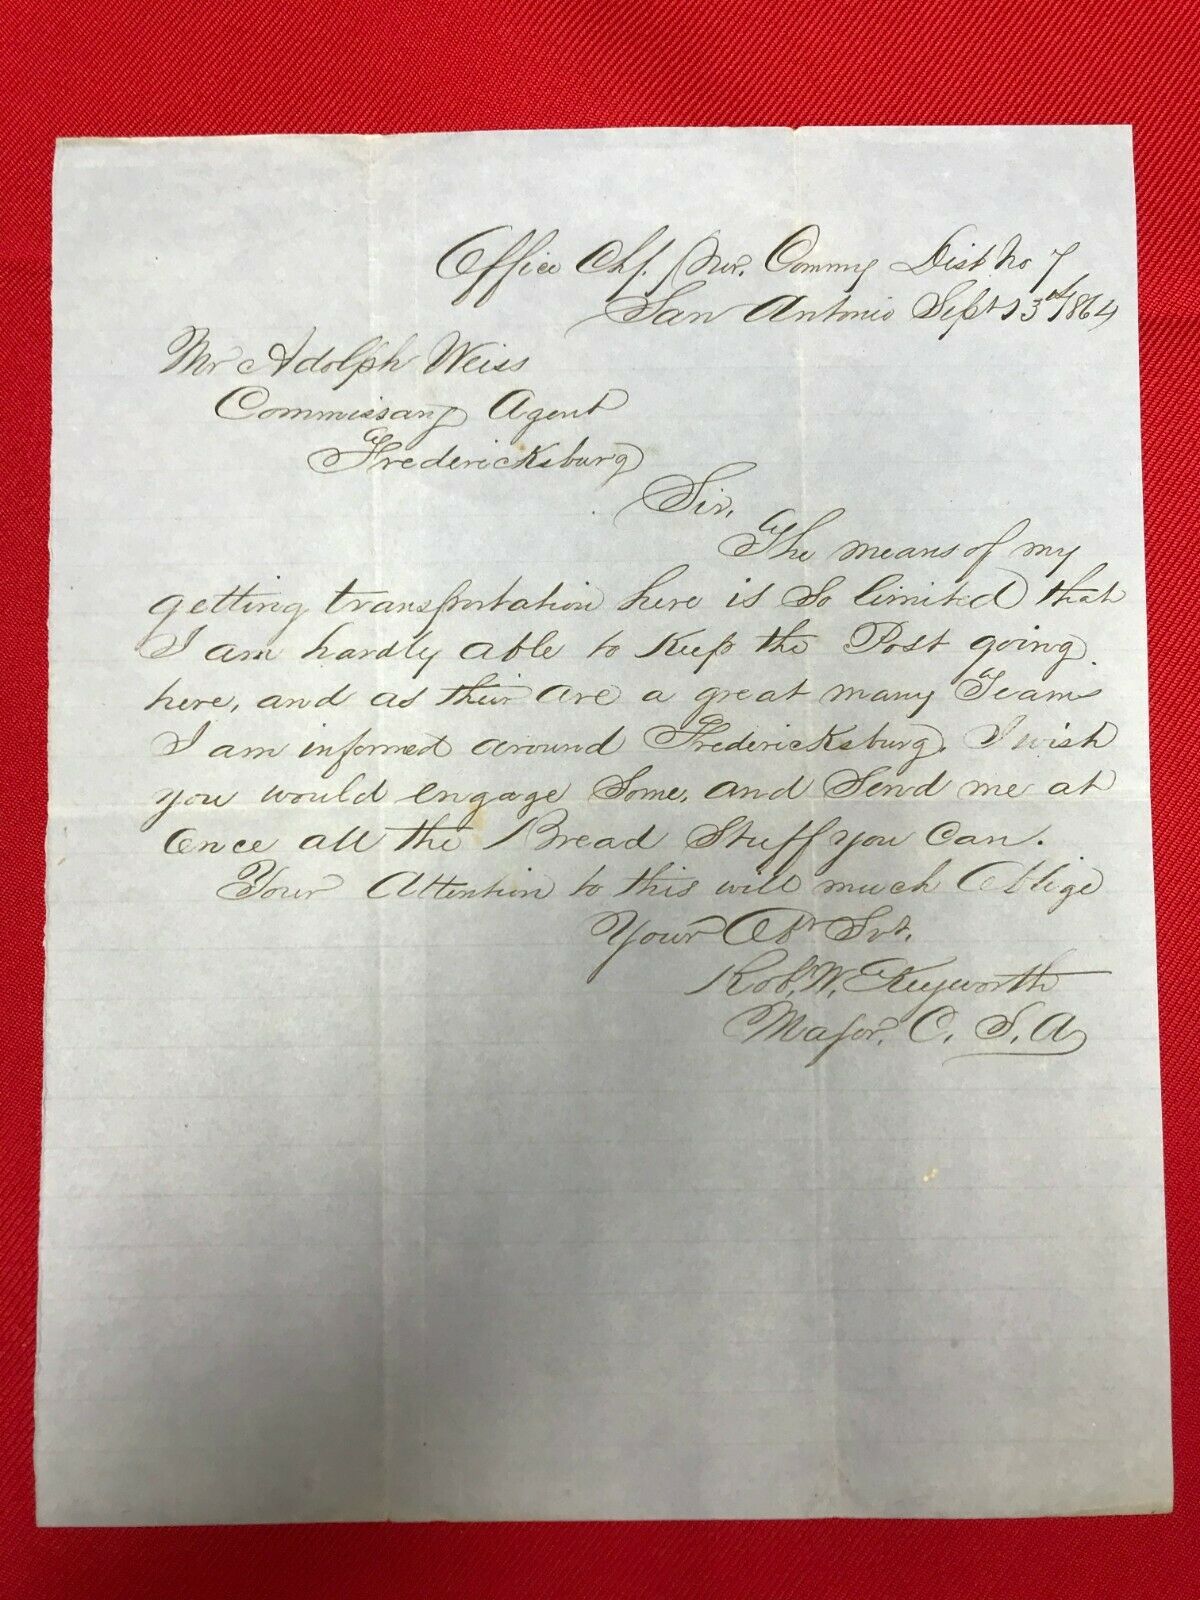 Office Chf. Pur. Commy Dist. No 7
San Antonio Sept 13th 1864
Mr Adolph Weiss
Commissary Agent
Fredericksburg
Sir,
The means of my
getting transportation here is So limited that
I am hardly able to Keep the Post going
here, and as their are a great many Teams
I am informed around Fredericksburg. I wish
you would engage Some, and Send me at
Once all the Bread Stuff you Can.
Your Attention to this will much Oblige
Your Obt Svt.
Rob. W. Keyworth
Major. C. S. A